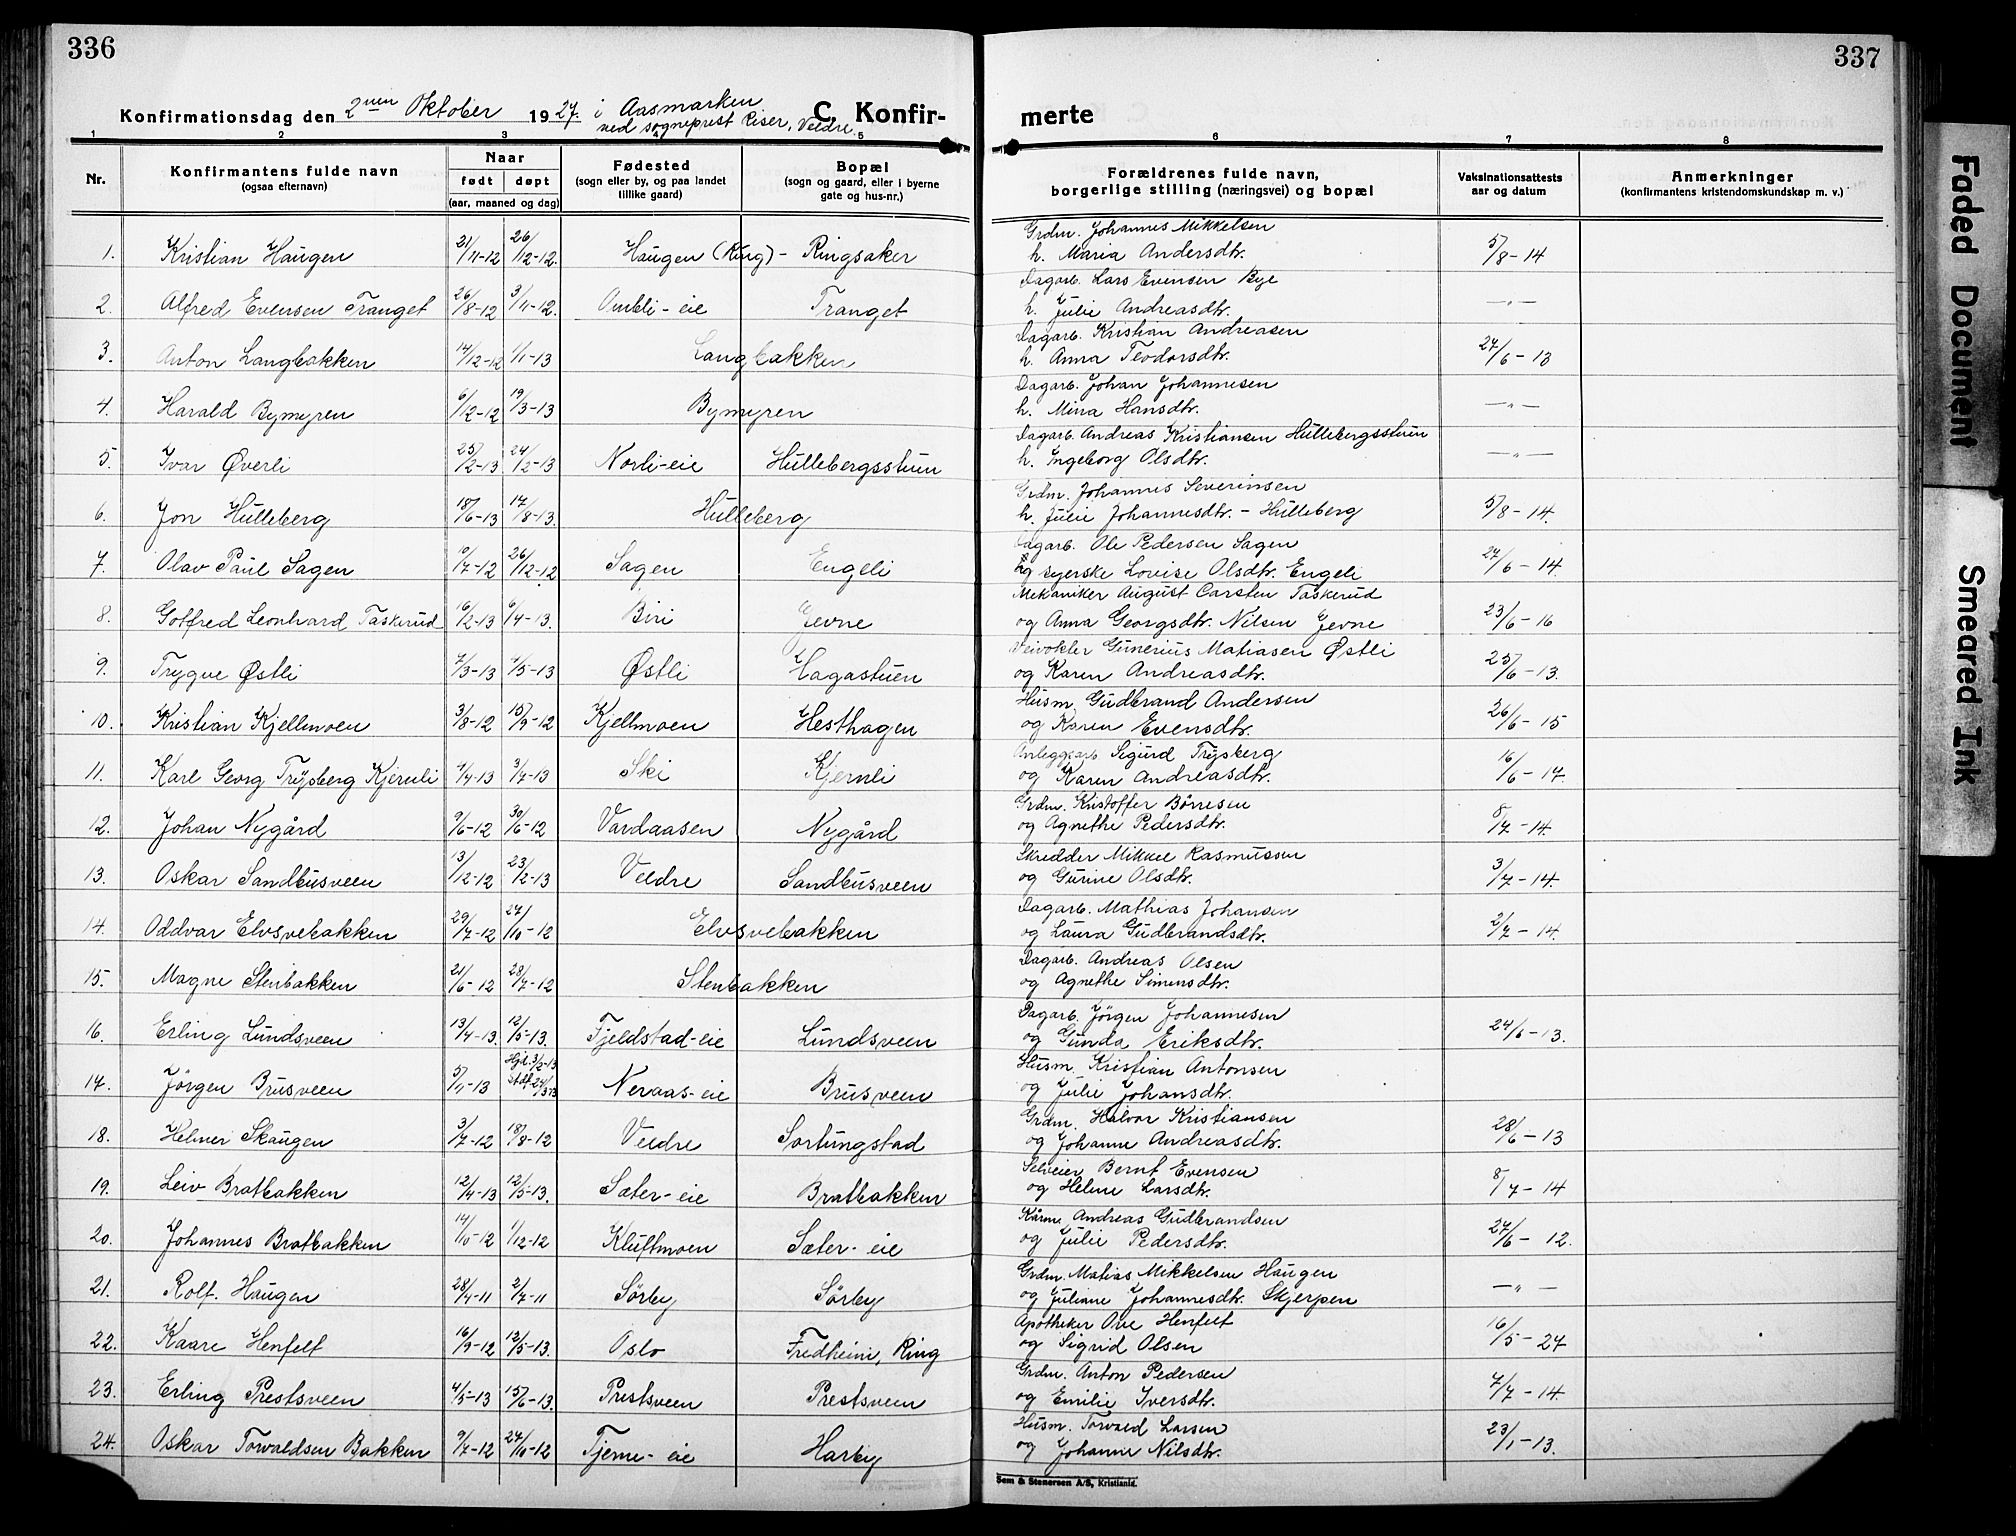 336
337
Konfirmationsdag den 2nen Oktober 1927. i Aasmarken
ved sogneprest Riser, Veldre.
C. Konfirmerte
1 2 3 4 5 6 7 8
Nr.
Konfirmantens fulde navn
(ogsaa efternavn)
Naar
født døpt
(aar, maaned og dag)
Fødested
(sogn eller by, og paa landet
tillike gaard)
Bopæl
(sogn og gaard, eller i byerne
gate og hus-nr.)
Forældrenes fulde navn,
borgerlige stilling (næringsvei) og bopæl
Vaksinationsattests
aar og datum
Anmerkninger
(konfirmantens kristendomskundskap m. v.)
1. Kristian Haugen 21/11-12 26/12-12. Haugen (Ring) - Ringsaker Grdm. Johannes Mikkelsen
h. Maria Andersdtr. 5/8-14
2. Alfred Evensen Tranget 26/8-12 3/11-12. Ombli-eie Tranget Dagarb. Lars Evensen Bye
h. Julie Andreasdtr. —"—
3. Anton Langbakken 14/12-12 1/1-13 Langbakken Dagarb. Kristian Andreasen
h. Anna Teodorsdtr. 27/6-13
4. Harald Bymyren 6/12-12 19/3-13 Bymyren Dagarb. Johan Johannesen
h. Mina Hansdtr. —"—
5. Ivar Øverli 25/2-13 24/2-13 Norli-eie Hullebergsstuen Dagarb. Andreas Kristiansen Hullebergsstuen
h. Ingeborg Olsdtr. —"—
6. Jon Hulleberg 18/6-13 17/8-13. Hulleberg Grdm. Johannes Severinsen
h. Julie Johannesdtr. - Hulleberg 5/8-14.
7. Olav Paul Sagen 10/7-12 26/12-12 Sagen Engeli Dagarb. Ole Pedersen Sagen
og syerske Lovise Olsdtr. Engeli 27/6-14.
8. Gotfred Leonhard Taskerud 16/2-13 6/4-13. Biri Jevne Mekaniker August Carsten Taskerud
og Anna Georgsdtr. Nilsen Jevne 23/6-16
9. Trygve Østli 7/3-13 4/5-13 Østli Hagastuen Veivokter Gunerius Matiasen Østli
og Karen Andreasdtr. 25/6-13.
10. Kristian Kjellmoen 3/8-12 15/9-12 Kjellmoen Hesthagen Husm. Gudbrand Andersen
og Karen Evensdtr. 26/6-15
11. Karl Georg Trysberg Kjernli 7/4-13 3/7-13 Ski Kjernli Anleggsarb. Sigurd Trysberg
og Karen Andreasdtr. 16/6-17.
12. Johan Nygård 9/6-12 30/6-12 Vardaasen Nygård Grdm. Kristoffer Børresen
og Agnethe Pedersdtr. 8/7-14.
13. Oskar Sandbusveen 13/12-12 23/2-13 Veldre Sandbusveen Skredder Mikkel Rasmussen
og Gurine Olsdtr. 3/7-14.
14. Oddvar Elvsvebakken 29/7-12 27/10-12 Elvsvebakken Dagarb. Mathias Johansen
og Laura Gudbrandsdtr. 2/7-14.
15. Magne Stenbakken 21/6-12 28/7-12 Stenbakken Dagarb. Andreas Olsen
og Agnethe Simensdtr.
16. Erling Lundsveen 13/4-13. 12/5-13. Fjeldstad-eie Lundsveen Dagarb. Jørgen Johannesen
og Gunda Eriksdtr. 24/6-13.
17. Jørgen Brusveen 5/1-13 Hjd. 3/2-13 Stdf. 24/3 13 Neraas-eie Brusveen Husm. Kristian Antonsen
og Julie Johansdtr.
18. Helmer Skaugen 3/7-12 18/8-12 Veldre Sortungstad Grdm. Halvor Kristiansen
og Johanne Andreasdtr. 28/6-13
19. Leiv Bratbakken 12/4-13 12/5-13. Sæter-eie Bratbakken Selveier Bernt Evensen
og Helene Larsdtr. 8/7-14
20. Johannes Bratbakken 14/10-12 1/12-12 Kluftmoen Sæter-eie Kårm. Andreas Gudbrandsen
og Julie Pedersdtr. 27/6-12.
21. Rolf. Haugen 28/4-11 2/7-11 Sörby Sörby Grdm. Matias Mikkelsen Haugen
og Juliane Johannesdtr. Skjerpen —"—
22. Kaare Henfelt 16/9-12 12/5-13. Oslo Fredheim, Ring Apotheker Ove Henfelt
og Sigrid Olsen 16/5-24
23. Erling Prestsveen 4/5-13 15/6-13. Prestsveen Prestsveen Grdm. Anton Pedersen
og Emilie Iversdtr. 7/7-14.
24. Oskar Torvaldsen Bakken 9/7-12 27/10-12 Tjerne-eie Harby Husm. Torvald Larsen
og Johanne Nilsdtr. 23/1-13.
Sem & Stenersen A/S, Kristiania.
Faded Document
Smeared Ink